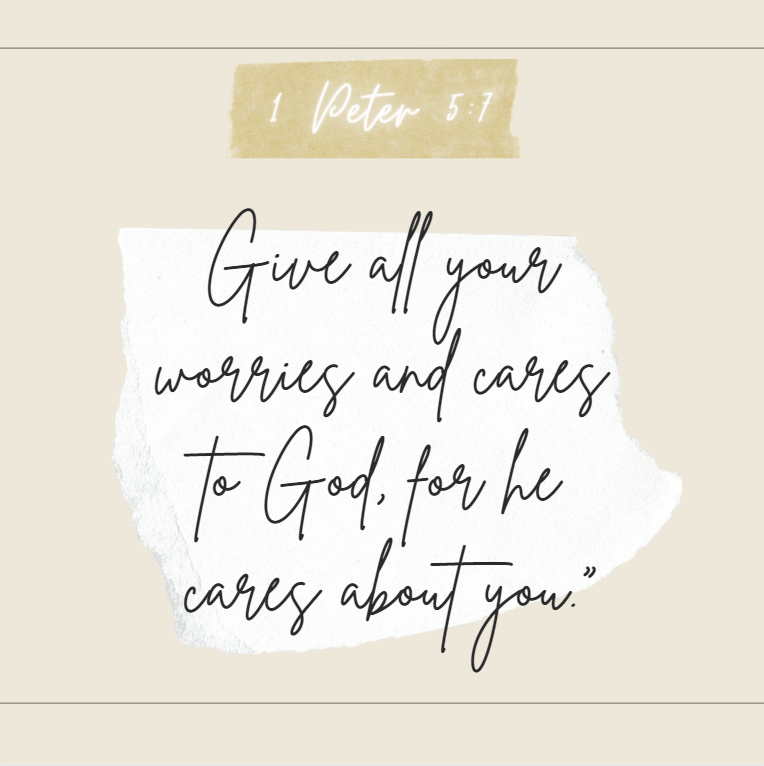 1 Peter 5:7
Give all your
worries and cares
to God, for he
cares about you.”